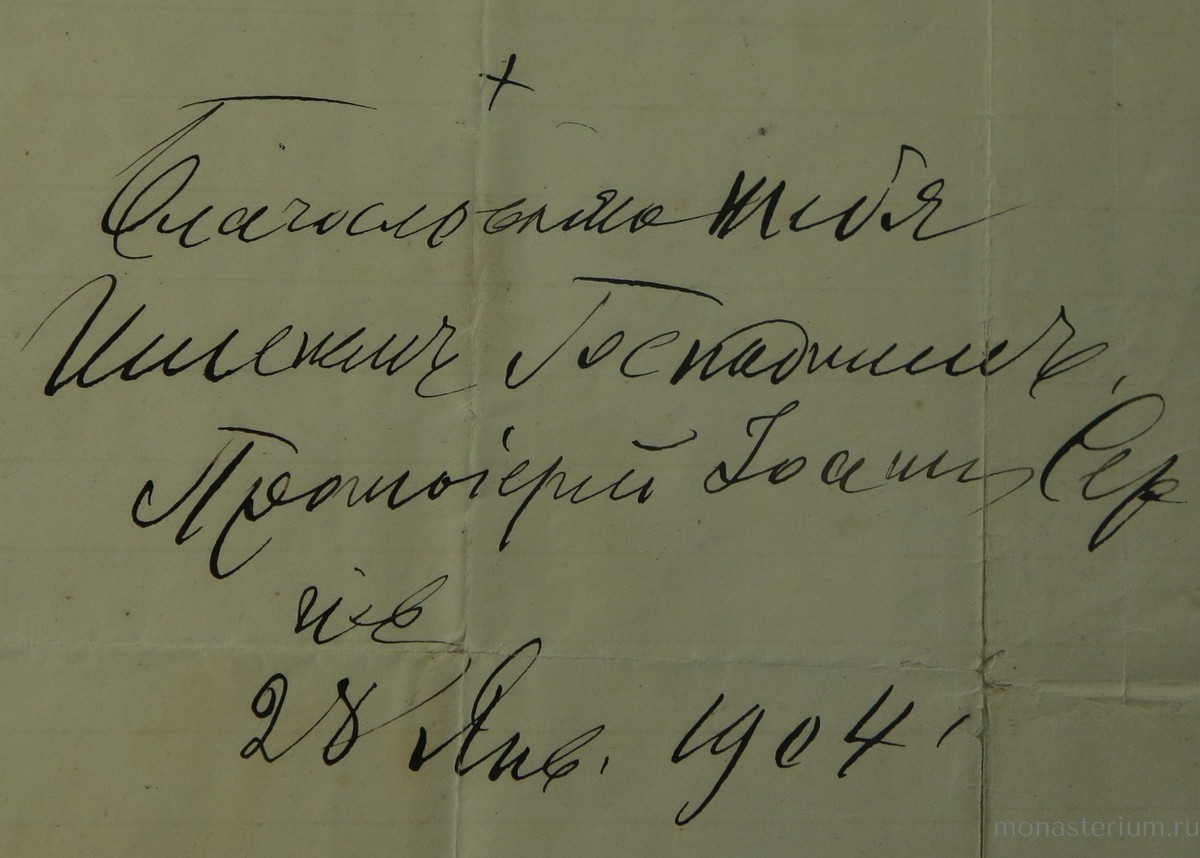 +
Благословляю тебя
Именемъ Господнимъ,
Протоіерей Іоаннъ Сер
гіев
28 Янв. 1904
monasterium.ru